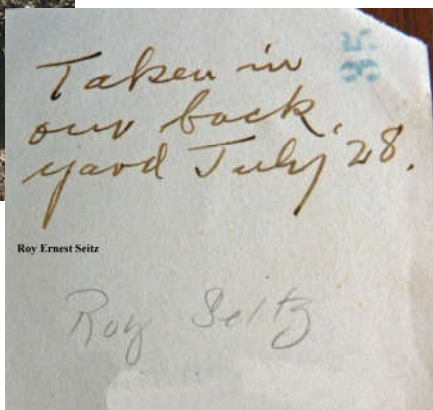 35
Taken in
our back
yard July 28.
Roy Ernest Seitz
Roy Seitz